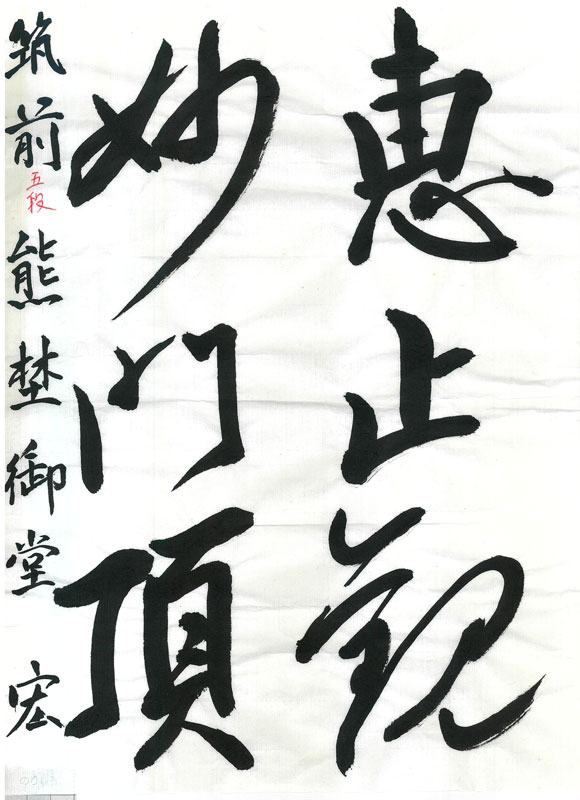 恵止観
妙門頂
筑前 熊埜御堂 宏
五段